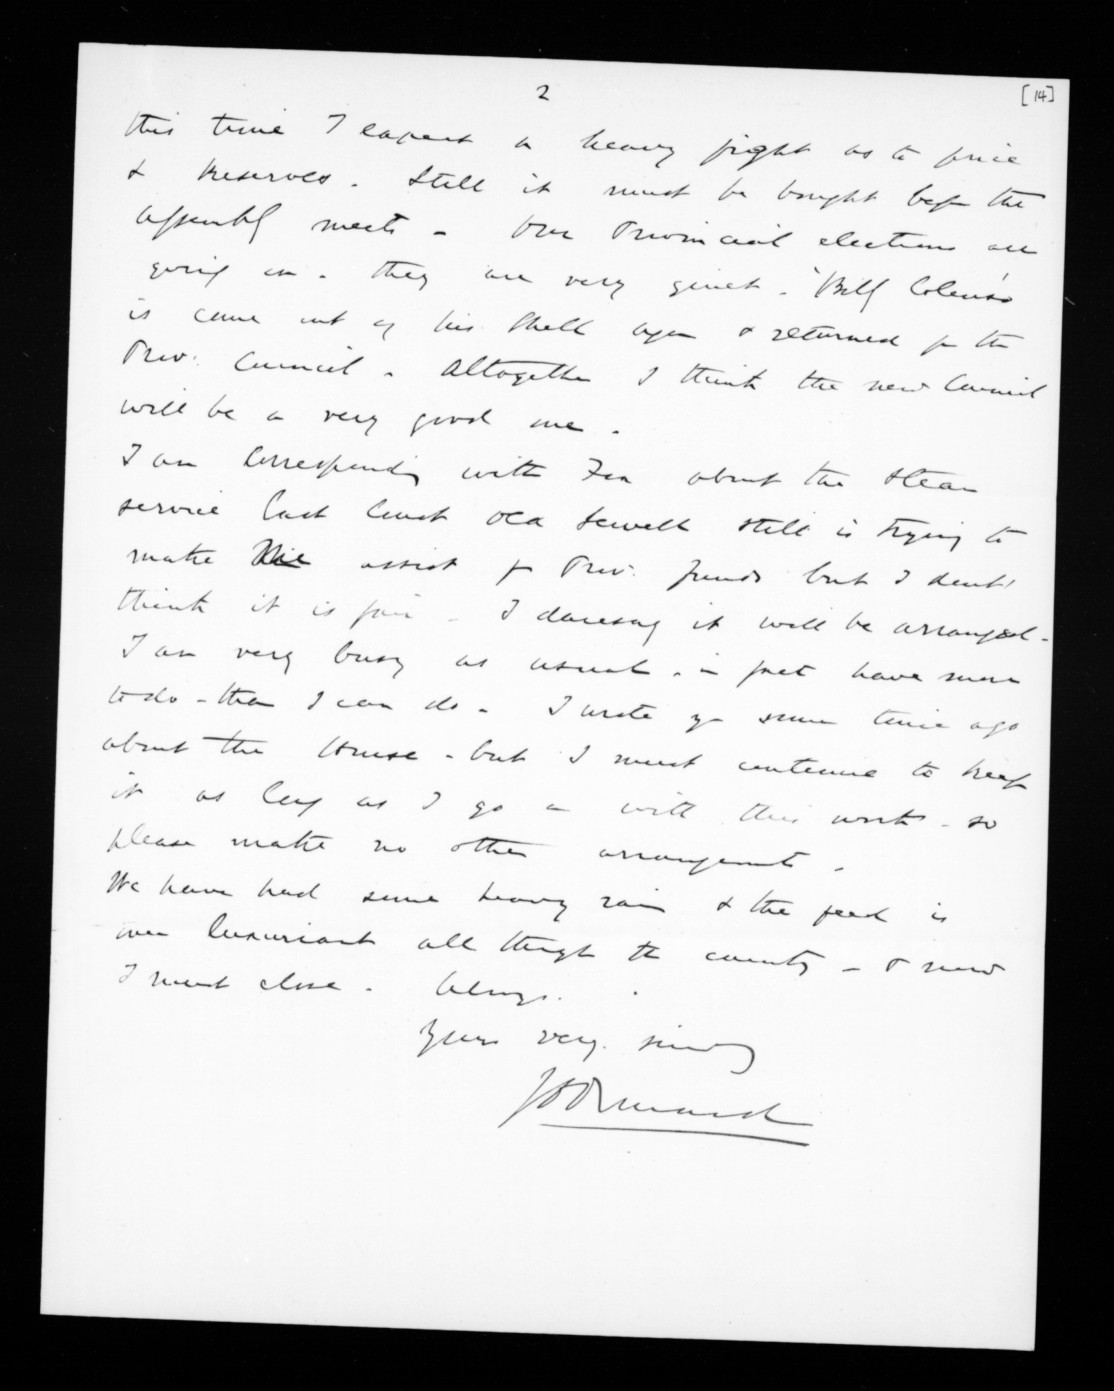 2
[14]
this time I expect a heavy fight as to price
& Reserves. Still it must be bought bef the
Assembly meets - Our Provincial elections are
going on - they are very quiet. "Billy Colenso"
is come out of his Shell again & returned for the
Prov: Council. Altogether I think the new Council
will be a very good one.
I am Corresponding with about the Steam
service East Coast old Sewell still is trying to
make me assist fr Prov: funds but I don't
think it is fair - I daresay it will be arranged -
I am very busy as usual - in fact have more
to do - than I can do - I wrote yr some time ago
about the House - but I must continue to keep
it as long as I go on with this work - so
please make no other arrangements.
We have had some heavy rain & the feed is
over luxuriant all through the country - & now
I must close - Always.
Yours very sincerely
J D Ormond